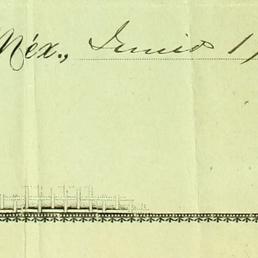 Méx., Junio 1,